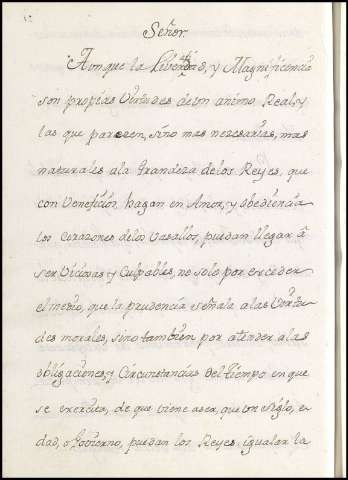 Señor.
Aunque la Liveralidad, y Magnificencia
son propias Virtudes de un animo Real, y
las que parecen, sino mas nezesarias, mas
naturales ala Grandeza delos Reyes, que
con Veneficios hagan en Amor, y obediencia
los Corazones delos Vasallos, puedan llegar â
ser Viciosas y Culpables, no solo por exceder
el medio, que la prudencia señala a las Virtu-
des morales, sino tambien por atender a las
obligaciones, y Circunstancias del tiempo en que
se exercita, de que viene aser, que un siglo, e-
dad, o Govierno, puedan los Reyes, igualar la